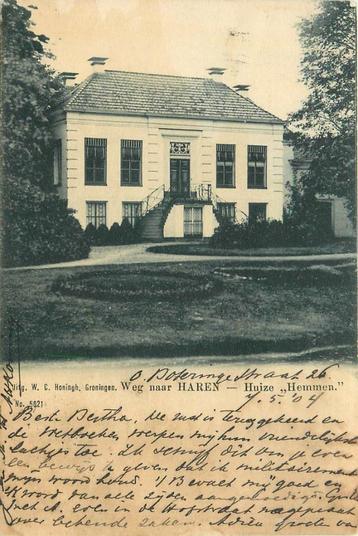 Uitg. W. C. Honingh, Groningen. Weg naar HAREN — Huize „Hemmen."
No. 5021
O. Boteringestraat 26
7.5.'04
Beste Bertha, De rust is teruggekeerd en
de wetboeken werpen mij hun vriendelijkste
lachjes toe. Ik schrijf dit om je even
een bewijs te geven dat ik militairement
mijn woord houd. 't Bevalt mij goed en
ik word van alle zijden
met A. eens in de Hofstraat
over bekende zaken. Adieu groeten van